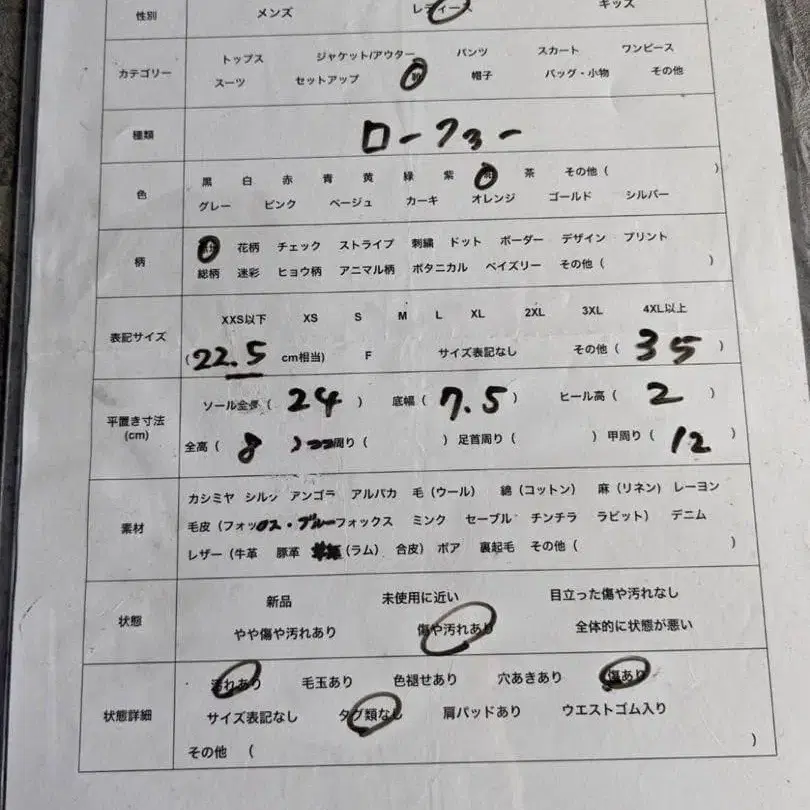 性別 メンズ レディース キッズ
カテゴリー トップス ジャケット/アウター パンツ スカート ワンピース
スーツ セットアップ 帽子 バッグ・小物 その他
種類 ローファー
色 黒 白 赤 青 黄 緑 紫 茶 その他 ( )
グレー ピンク ベージュ カーキ オレンジ ゴールド シルバー
柄 花柄 チェック ストライプ 刺繍 ドット ボーダー デザイン プリント
総柄 迷彩 ヒョウ柄 アニマル柄 ボタニカル ペイズリー その他 ( )
表記サイズ XXS以下 XS S M L XL 2XL 3XL 4XL以上
(22.5 cm相当) F サイズ表記なし その他 ( 35 )
平置き寸法(cm) ソール全長 ( 24 ) 底幅 ( 7.5 ) ヒール高 ( 2 )
全高 ( 8 ) 周り ( ) 足首周り ( ) 甲周り ( 12 )
素材 カシミヤ シルク アンゴラ アルパカ 毛 (ウール) 綿 (コットン) 麻 (リネン) レーヨン
毛皮 (フォックス・ブルーフォックス ミンク セーブル チンチラ ラビット) デニム
レザー (牛革 豚革 (ラム) 合皮) ボア 裏起毛 その他 ( )
状態 新品 未使用に近い 目立った傷や汚れなし
やや傷や汚れあり 傷や汚れあり 全体的に状態が悪い
状態詳細 汚れあり 毛玉あり 色褪せあり 穴あきあり 傷あり
サイズ表記なし タグ類なし 肩パッドあり ウエストゴム入り
その他 ( )